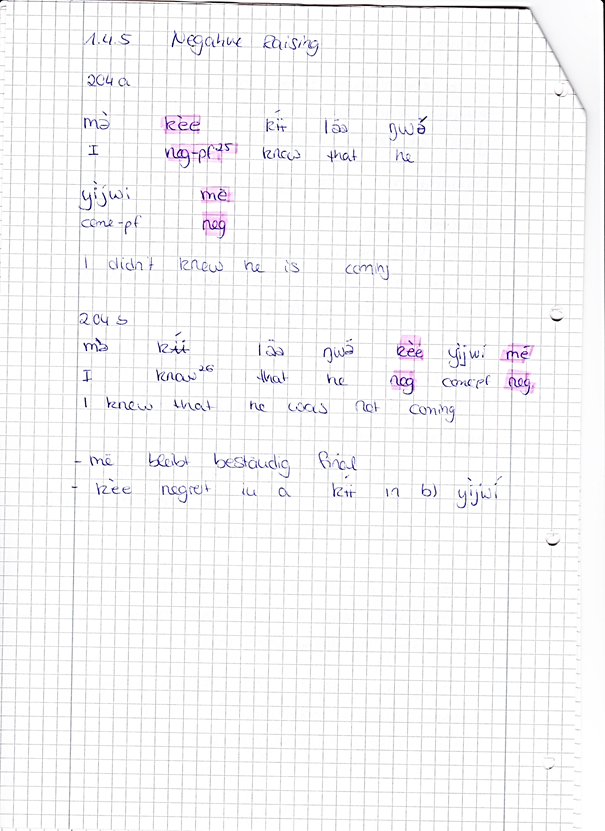 1.4.5 Negative Raising
204 a
mə̀ kèe kɨ́ɨ lāā ŋwə́
I neg-pf²⁵ know that he
yìjwi mē
come-pf neg
I didn't know he is coming
204 b
mə̀ kɨ́ɨ lāā ŋwə́ kèe yìjwí mē
I know²⁶ that he neg come-pf neg.
I knew that he was not coming
- mē bleibt beständig final
- kèe negiert in a kɨ́ɨ in b) yìjwí